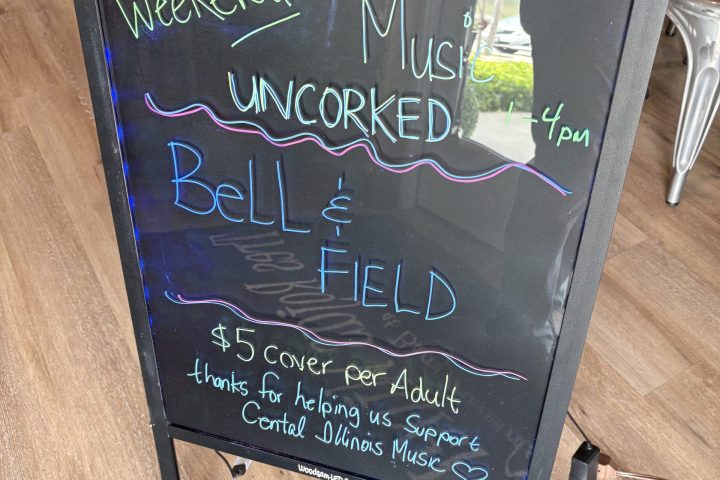 Weekend
Music
UNCORKED
1-4pm
BELL &
FIELD
$5 cover per Adult
thanks for helping us support
Cental Illinois Music